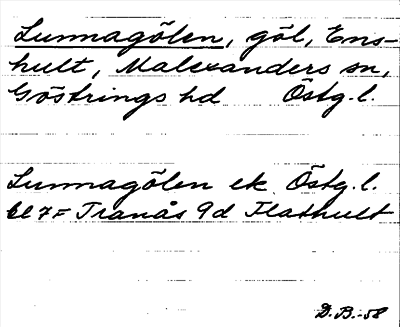 Lunnagölen, göl, Ens-
hult, Malexanders sn,
Göstrings hd Östg. l.
Lunnagölen ek Östg. l.
bl 7F Tranås 9d Flathult
D. B. -58